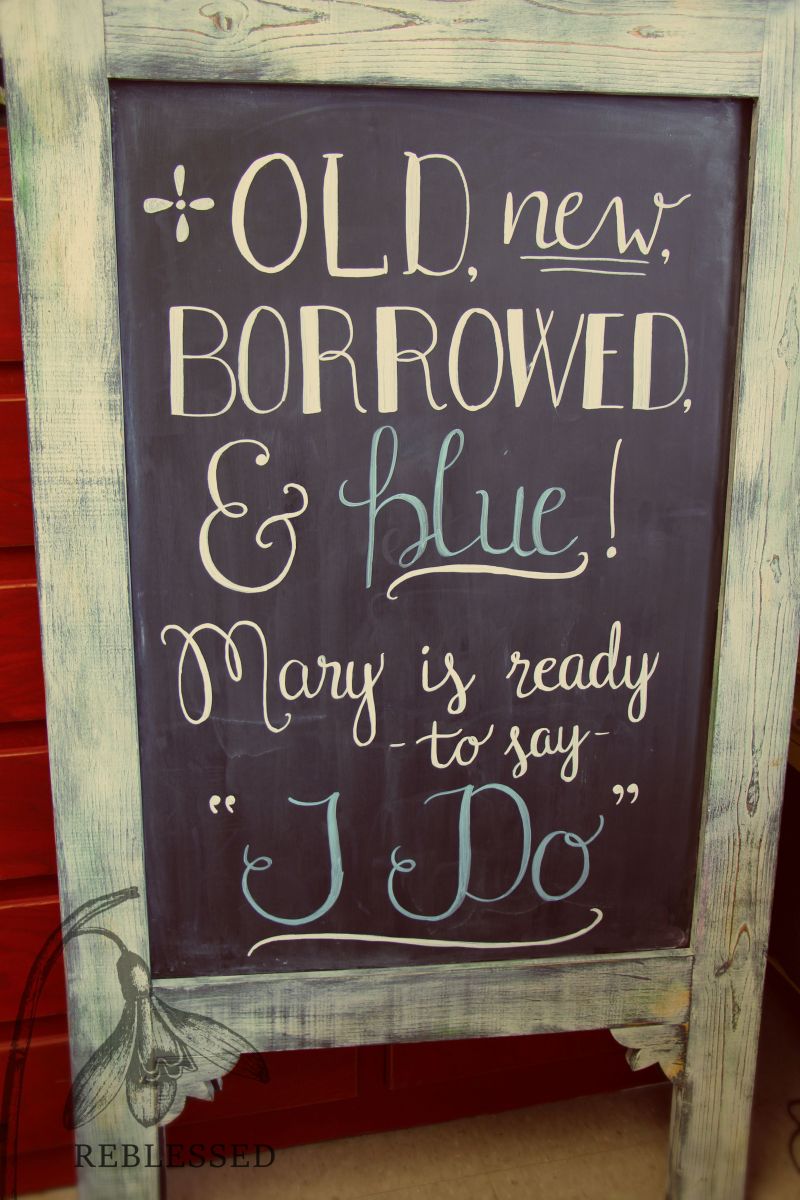 OLD, new,
BORROWED,
& blue!
Mary is ready
-to say-
"I Do"
REBLESSED